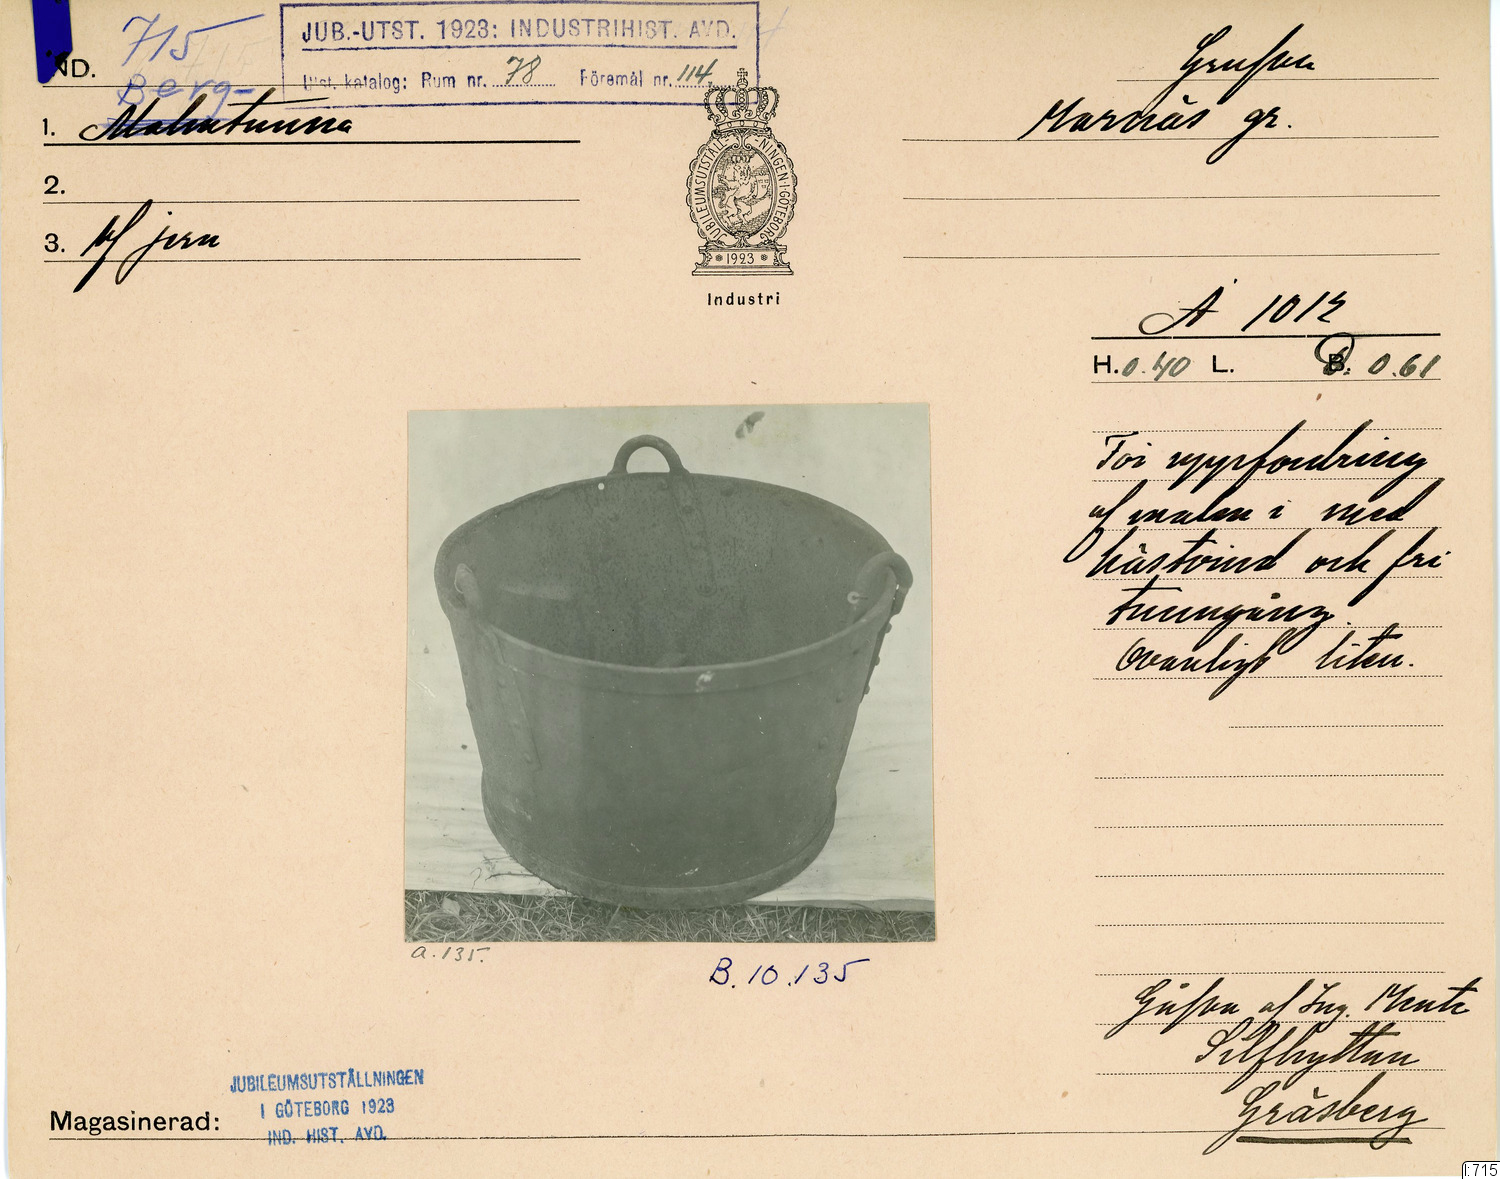 JUB.-UTST. 1923: INDUSTRIHIST. AVD.
Utst. katalog: Rum nr. 78 Föremål nr. 114
IND. 715
Berg-
1. Malmtunna
2.
3. Af jern
JUBILEUMSUTSTÄLLNINGEN I GÖTEBORG
1923
Industri
Grufva
Marnäs gr.
A 1012
H. 0.40 L. B. 0.61
För uppfordring
af malm i med
hästvind och fri
tunngång.
Ovanligt liten.
a.135.
B.10.135
Gåfva af Ing. Mente
Silfhyttan
Gräsberg
JUBILEUMSUTSTÄLLNINGEN
I GÖTEBORG 1923
IND. HIST. AVD.
Magasinerad:
I:715